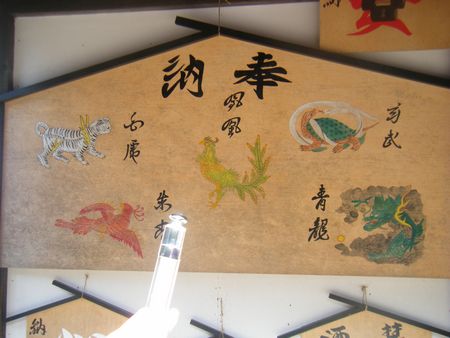 奉納
鳳凰
玄武
白虎
青龍
朱
納
奉
酒